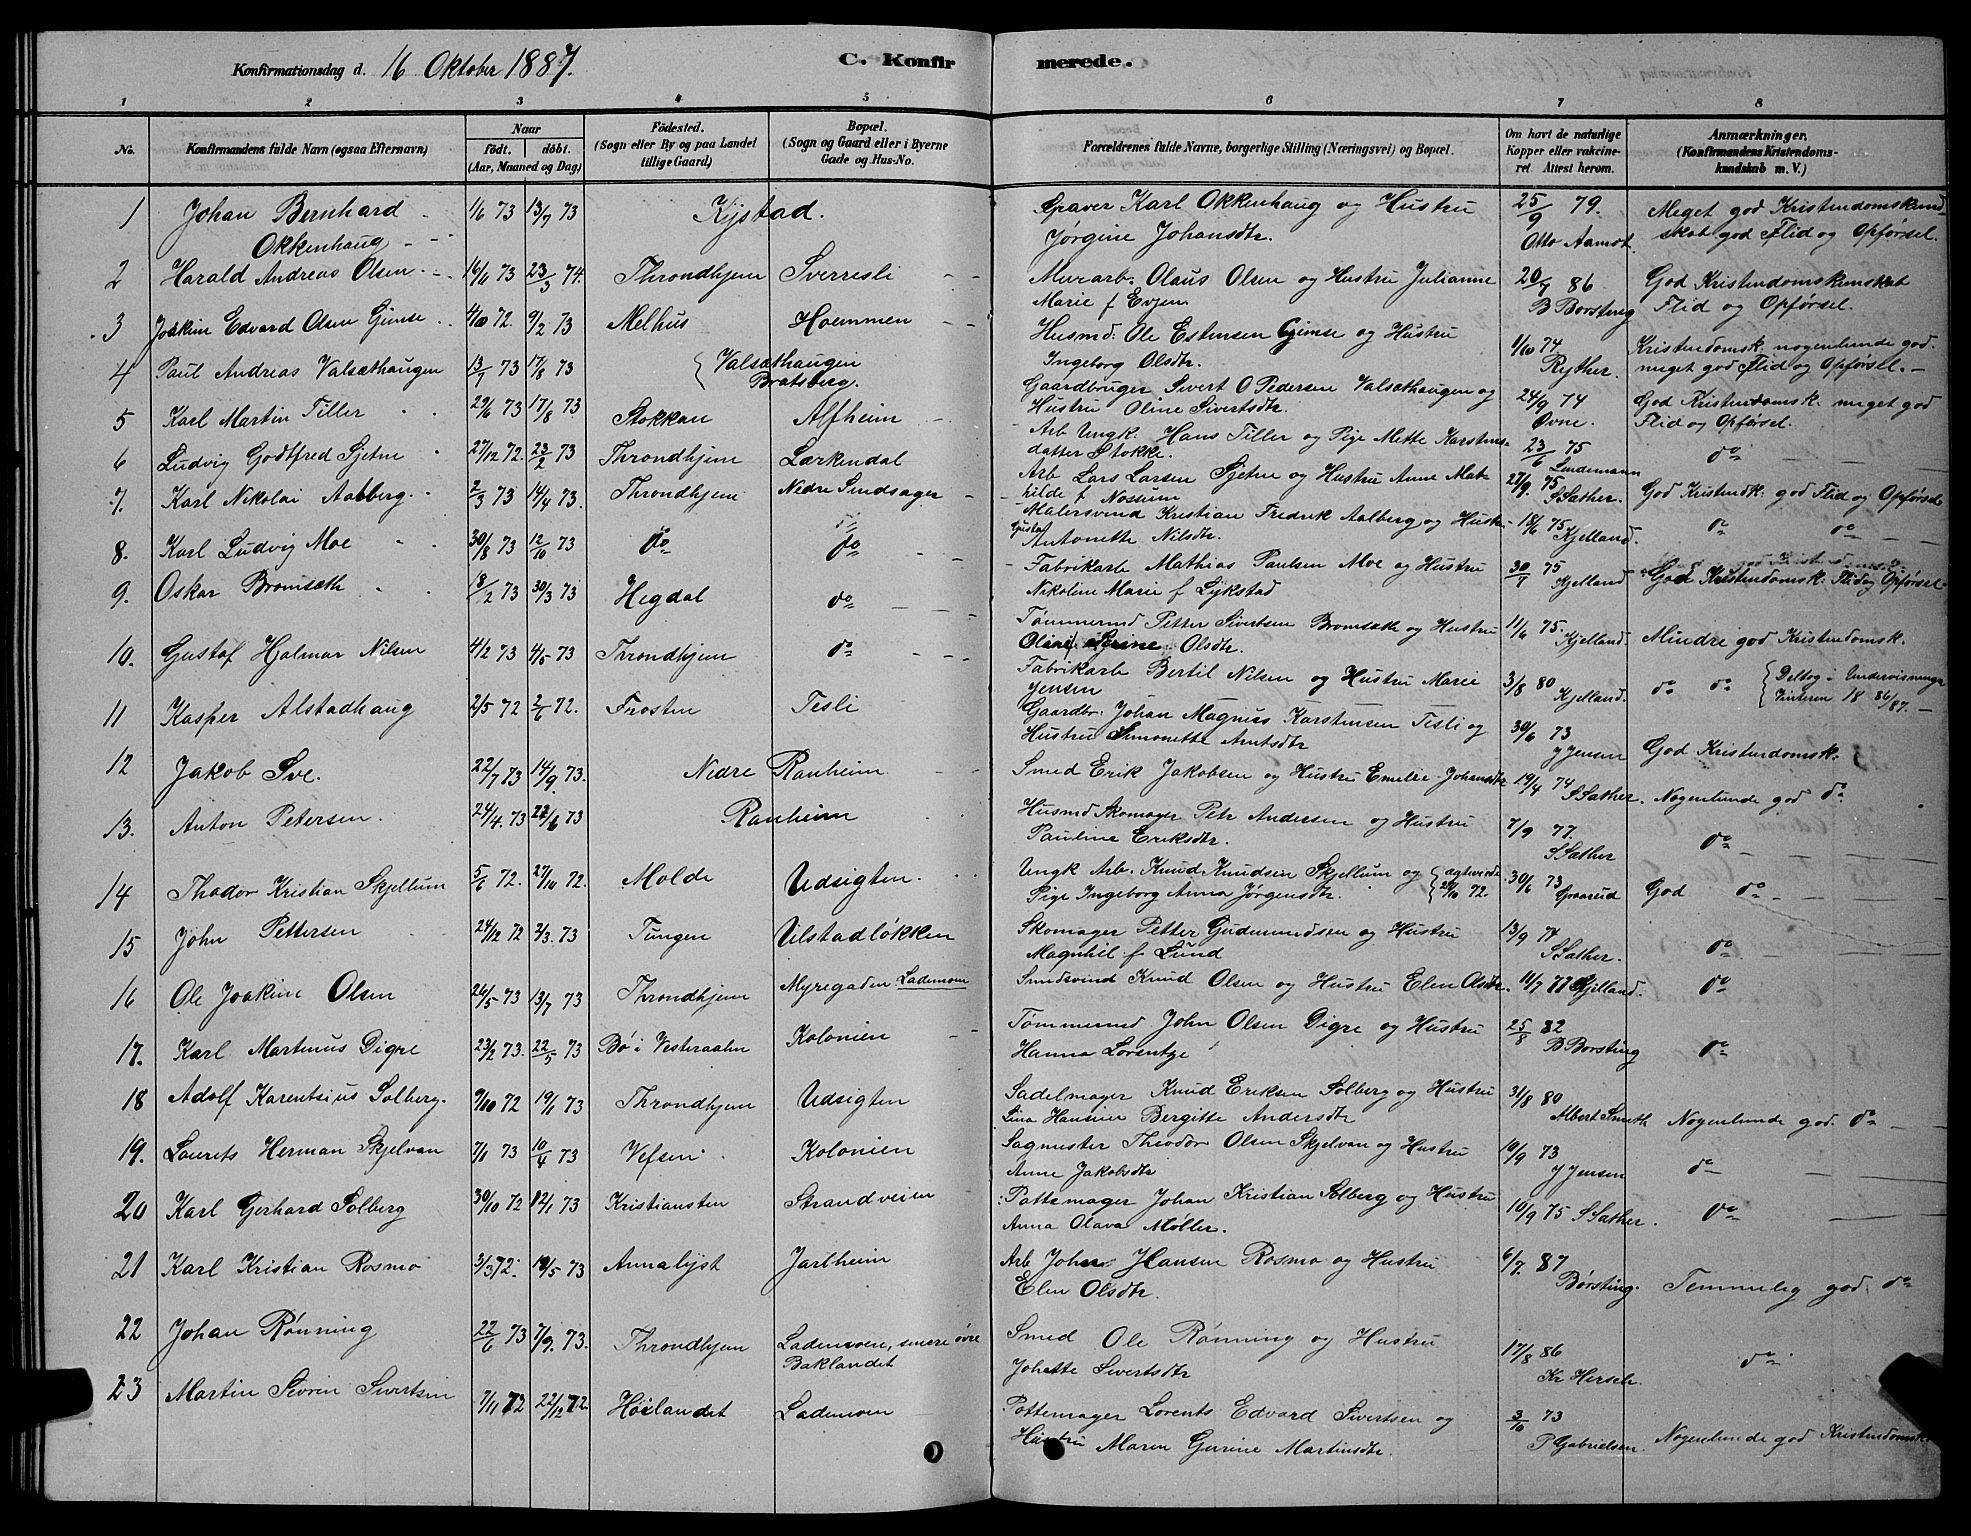 Konfirmationsdag d. 16 Oktober 1887.
C. Konfirmerede.
1 2 3 4 5 6 7 8
No.
Konfirmandens fulde Navn (ogsaa Efternavn)
Naar
födt. döbt.
(Aar, Maaned og Dag)
Födested.
(Sogn eller By og paa Landet
tillige Gaard)
Bopæl.
(Sogn og Gaard eller i Byerne
Gade og Hus-No.
Forældrenes fulde Navne, borgerlige Stilling (Næringsvei) og Bopæl.
Om havt de naturlige
Kopper eller vakcine-
ret Attest herom.
Anmærkninger.
(Konfirmandens Kristendoms-
kundskab m. V.)
1 Johan Bernhard 1/6 73 13/7 73 Kystad. Graver Karl Okkenhaug og Hustru 25/9 79. Meget god Kristendomskund-
Okkenhaug Jørgine Johansdtr. Otto Aamot. skab god Flid og Opførsel.
2 Harald Andreas Olsen 16/11 73 23/3 74. Throndhjem Sverresli Murarb. Olaus Olsen og Hustru Julianne 20/7 86 God Kristendomskundskab
Marie f Evjen B Borsting Flid og Opførsel.
3 Joakim Edvard Olsen Gimse 4/10 72. 9/2 73 Melhus Hoemmen Husmd. Ole Estensen Gimse og Hustru 1/10 74 Kristendomsk. nogenlunde god.
Ingeborg Olsdtr. Ryther. meget god Flid og Opførsel.
4 Paul Andreas Valsæthaugen 13/7 73 17/8 73 Valsæthaugen Bratsberg. Gaardbruger Sivert O Pedersen Valsæthaugen og 24/9 74 God Kristendomsk. meget god
Hustru Oline Sivertsdtr. Øvne. Flid og Opførsel.
5 Karl Martin Tiller 29/6 73 17/8 73 Stokkan Alfheim Arb Ungk. Hans Tiller og Pige Mette Karstens- 23/6 75 do
datter Stokke. Lindemann
6 Ludvig Godtfred Sjetne 27/12 72. 23/2 73 Throndhjem Lerkendal Arb Lars Larsen Sjetne og Hustru Anne Mat- 27/9. 75 God Kristendk. god Flid og Opførsel
hilde f Nossum S Sather.
7. Karl Nikolai Aalberg 2/3 73 14/4 73. Throndhjem Nedre Sindsager Malersvend Kristian Fredrik Aalberg og Hustr 18/6 75 do do
Gustaf Antonette Nilsdtr. Kjelland.
8. Karl Ludvig Moe 30/8 73 12/10 73 do do Fabrikarb Mathias Paulsen Moe og Hustru 30/7 75 God Kristendomsk. Flid og Opførsel
Nikoline Marie f Lykstad Kjelland
9. Oskar Bromsæth 18/2 73 30/3 73 Hegdal do Tømmermd Petter Sivertsen Bromsæth og Hustru 11/6 75. Mindre god Kristendomsk.
Oline Olsdtr. Kjelland.
10. Gustaf Hjalmar Nilsen 4/2 73 4/5 73 Throndhjem do Fabrikarb Bertil Nilsen og Hustru Marie 3/8 80 do do Deltog i Undervisninge
Jensen Kjelland. Vinteren 1886/87.
11 Kasper Alstadhaug 2/5 72 2/6 72. Frosten Tesli Gaardbr. Johan Magnus Karstensen Tesli og 30/6 73
Hustru Simonette Arntsdtr J Jensen God Kristendomsk.
12 Jakob Sve. 22/7 73 14/9 73. Nedre Ranheim Smed Erik Jakobsen og Hustru Emelie Johansdtr 19/4 74 S Sather. Nogenlunde god do
13. Anton Petersen. 24/4. 73 22/6 73 Ranheim Husmd Skomager Petr Andersen og Hustru 7/9 77. do
Pauline Eriksdtr. S Sather
14 Thodor Kristian Skjellum 5/6 72. 27/10 72. Molde Udsigten. Ungk Arb. Knud Knudsen Skjellum og agteviede 30/6 73 God do
Pige Ingeborg Anna Jørgensdtr. 28/10 72. Graarud
15 John Pettersen 24/12 72 2/3. 73 Tungen Ulstadløkken Skomager Petter Gudmundsen og Hustru 13/9 74 do
Magnhil f Lund S Sather.
16 Ole Joakim Olsen 26/5 73 13/7 73 Throndhjem Myregaden Lademoen Smedsvend Knud Olsen og Hustru Elen Olsdtr 11/7 77 Kjelland. do
17. Karl Martinus Digre 23/2 73. 22/5 73 Bø i Vesteraalen Kolonien Tømmermd John Olsen Digre og Hustru 25/8 82 do
Hanna Lorentze B Borsting
18 Adolf Karentsius Solberg. 9/10 72 19/1 73 Throndhjem Udsigten Sadelmager Knud Eriksen Solberg og Hustru 31/8 80
Lina Hansine Bergitte Andersdtr Albert Smith Nogenlunde god. do
19. Laurets Herman Skjelvan 7/1 73 10/4 73 Vefsen Kolonien Sagmester Theodor Olsen Skjelvan og Hustru 19/9 73 do
Anne Jakobsdtr J Jensen
20 Karl Gerhard Solberg 30/10 72 12/1 73 Kristiansten Strandveien Pottemager Johan Kristian Solberg og Hustru 10/9 75 S Sather. do
Anna Olava Møller.
21 Karl Kristian Rosmo 3/3 72. 19/5 73 Annalyst Jarlheim Arb Johan Hansen Rosmo og Hustru 6/7. 87
Elen Olsdtr. Børsting. Temmelig god do
22 Johan Rønning 22/6 73 7/9. 73. Throndhjem Lademoen, senere øvre Baklandet Smed Ole Rønning og Hustru 17/8 86 do
Johette Sivertsdtr Kr Hersch.
23 Martin Severin Sivertsen 7/11 72 22/12 72. Høilandet Lademoen Pottemager Lorents Edvard Sivertsen og 3/10 73 Nogenlunde god Kristendomsk
Hustru Maren Gurine Martinsdtr. P Gabrielsen.